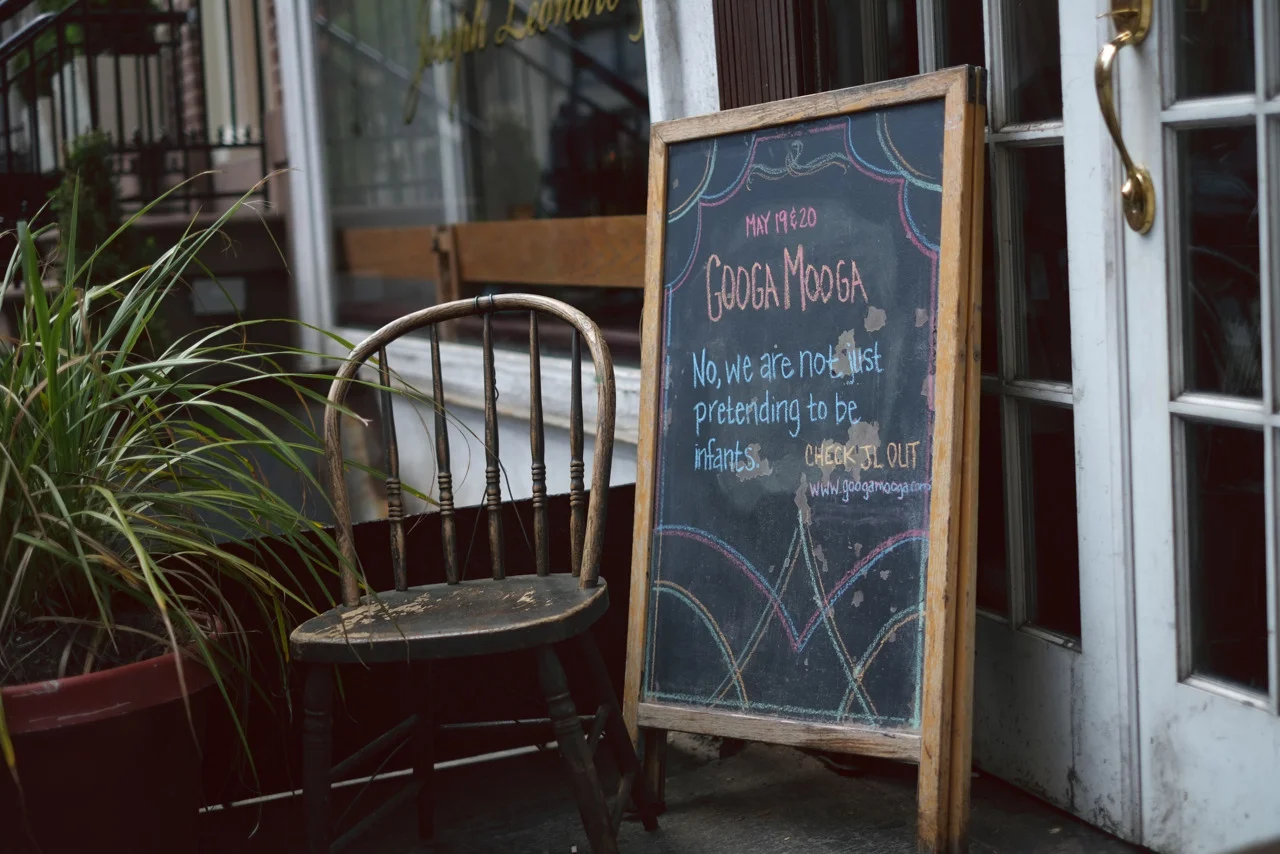 Joseph Leonard
MAY 19 & 20
GOOGA MOOGA
No, we are not just
pretending to be
infants.
CHECK IT OUT
www.googamooga.com